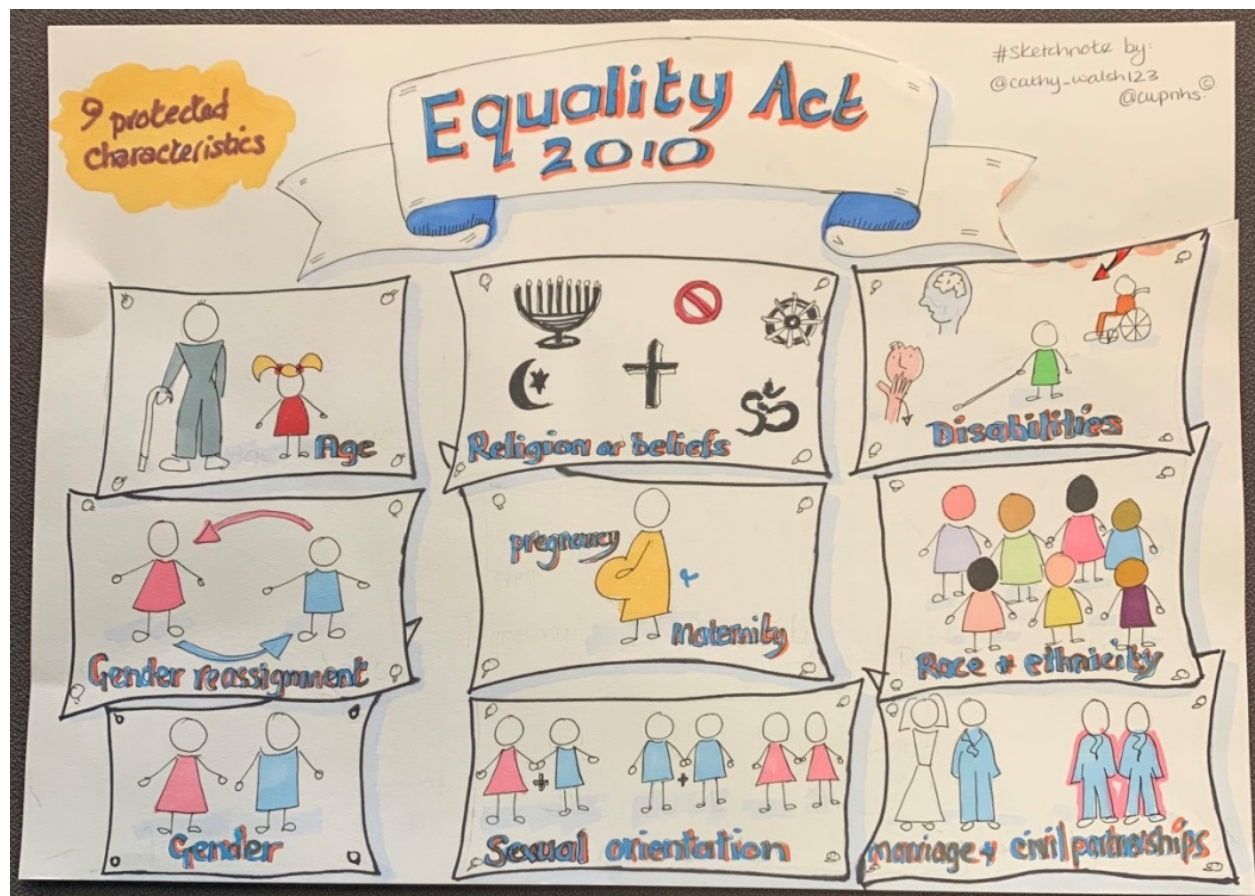 9 protected
characteristics
Equality Act
2010
#sketchnote by:
@cathy_walsh123
@cwpnhs. ©
Age
Religion or beliefs
Disabilities
Gender reassignment
pregnancy
+
maternity
Race + ethnicity
Gender
Sexual orientation
marriage + civil partnerships